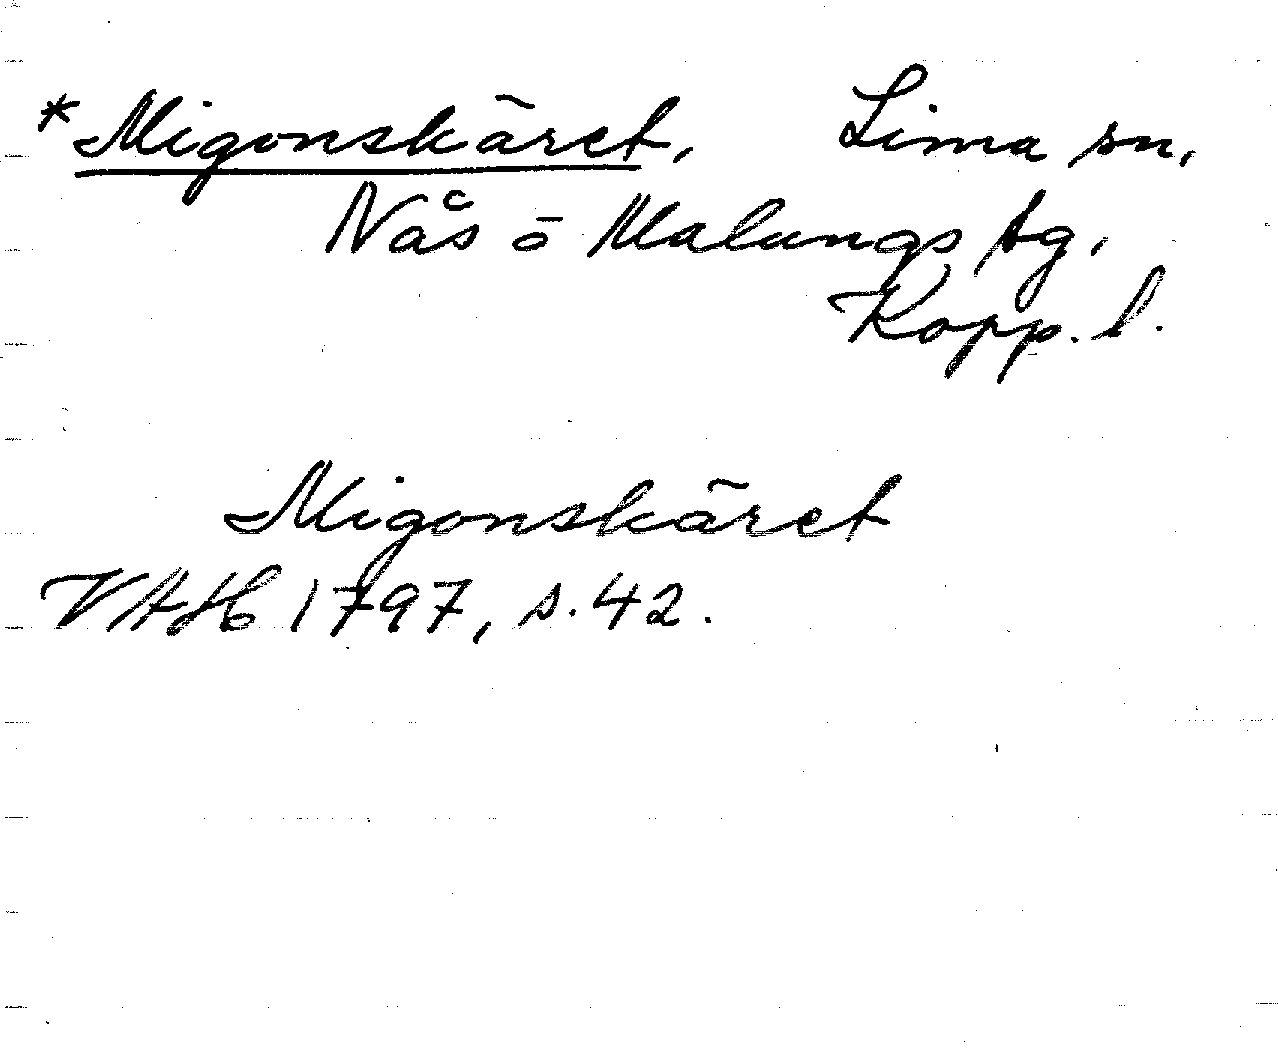 *Migonskäret, Lima sn,
Nås o Malungs tg,
Kopp. l.
Migonskäret
VAH 1797, s. 42.